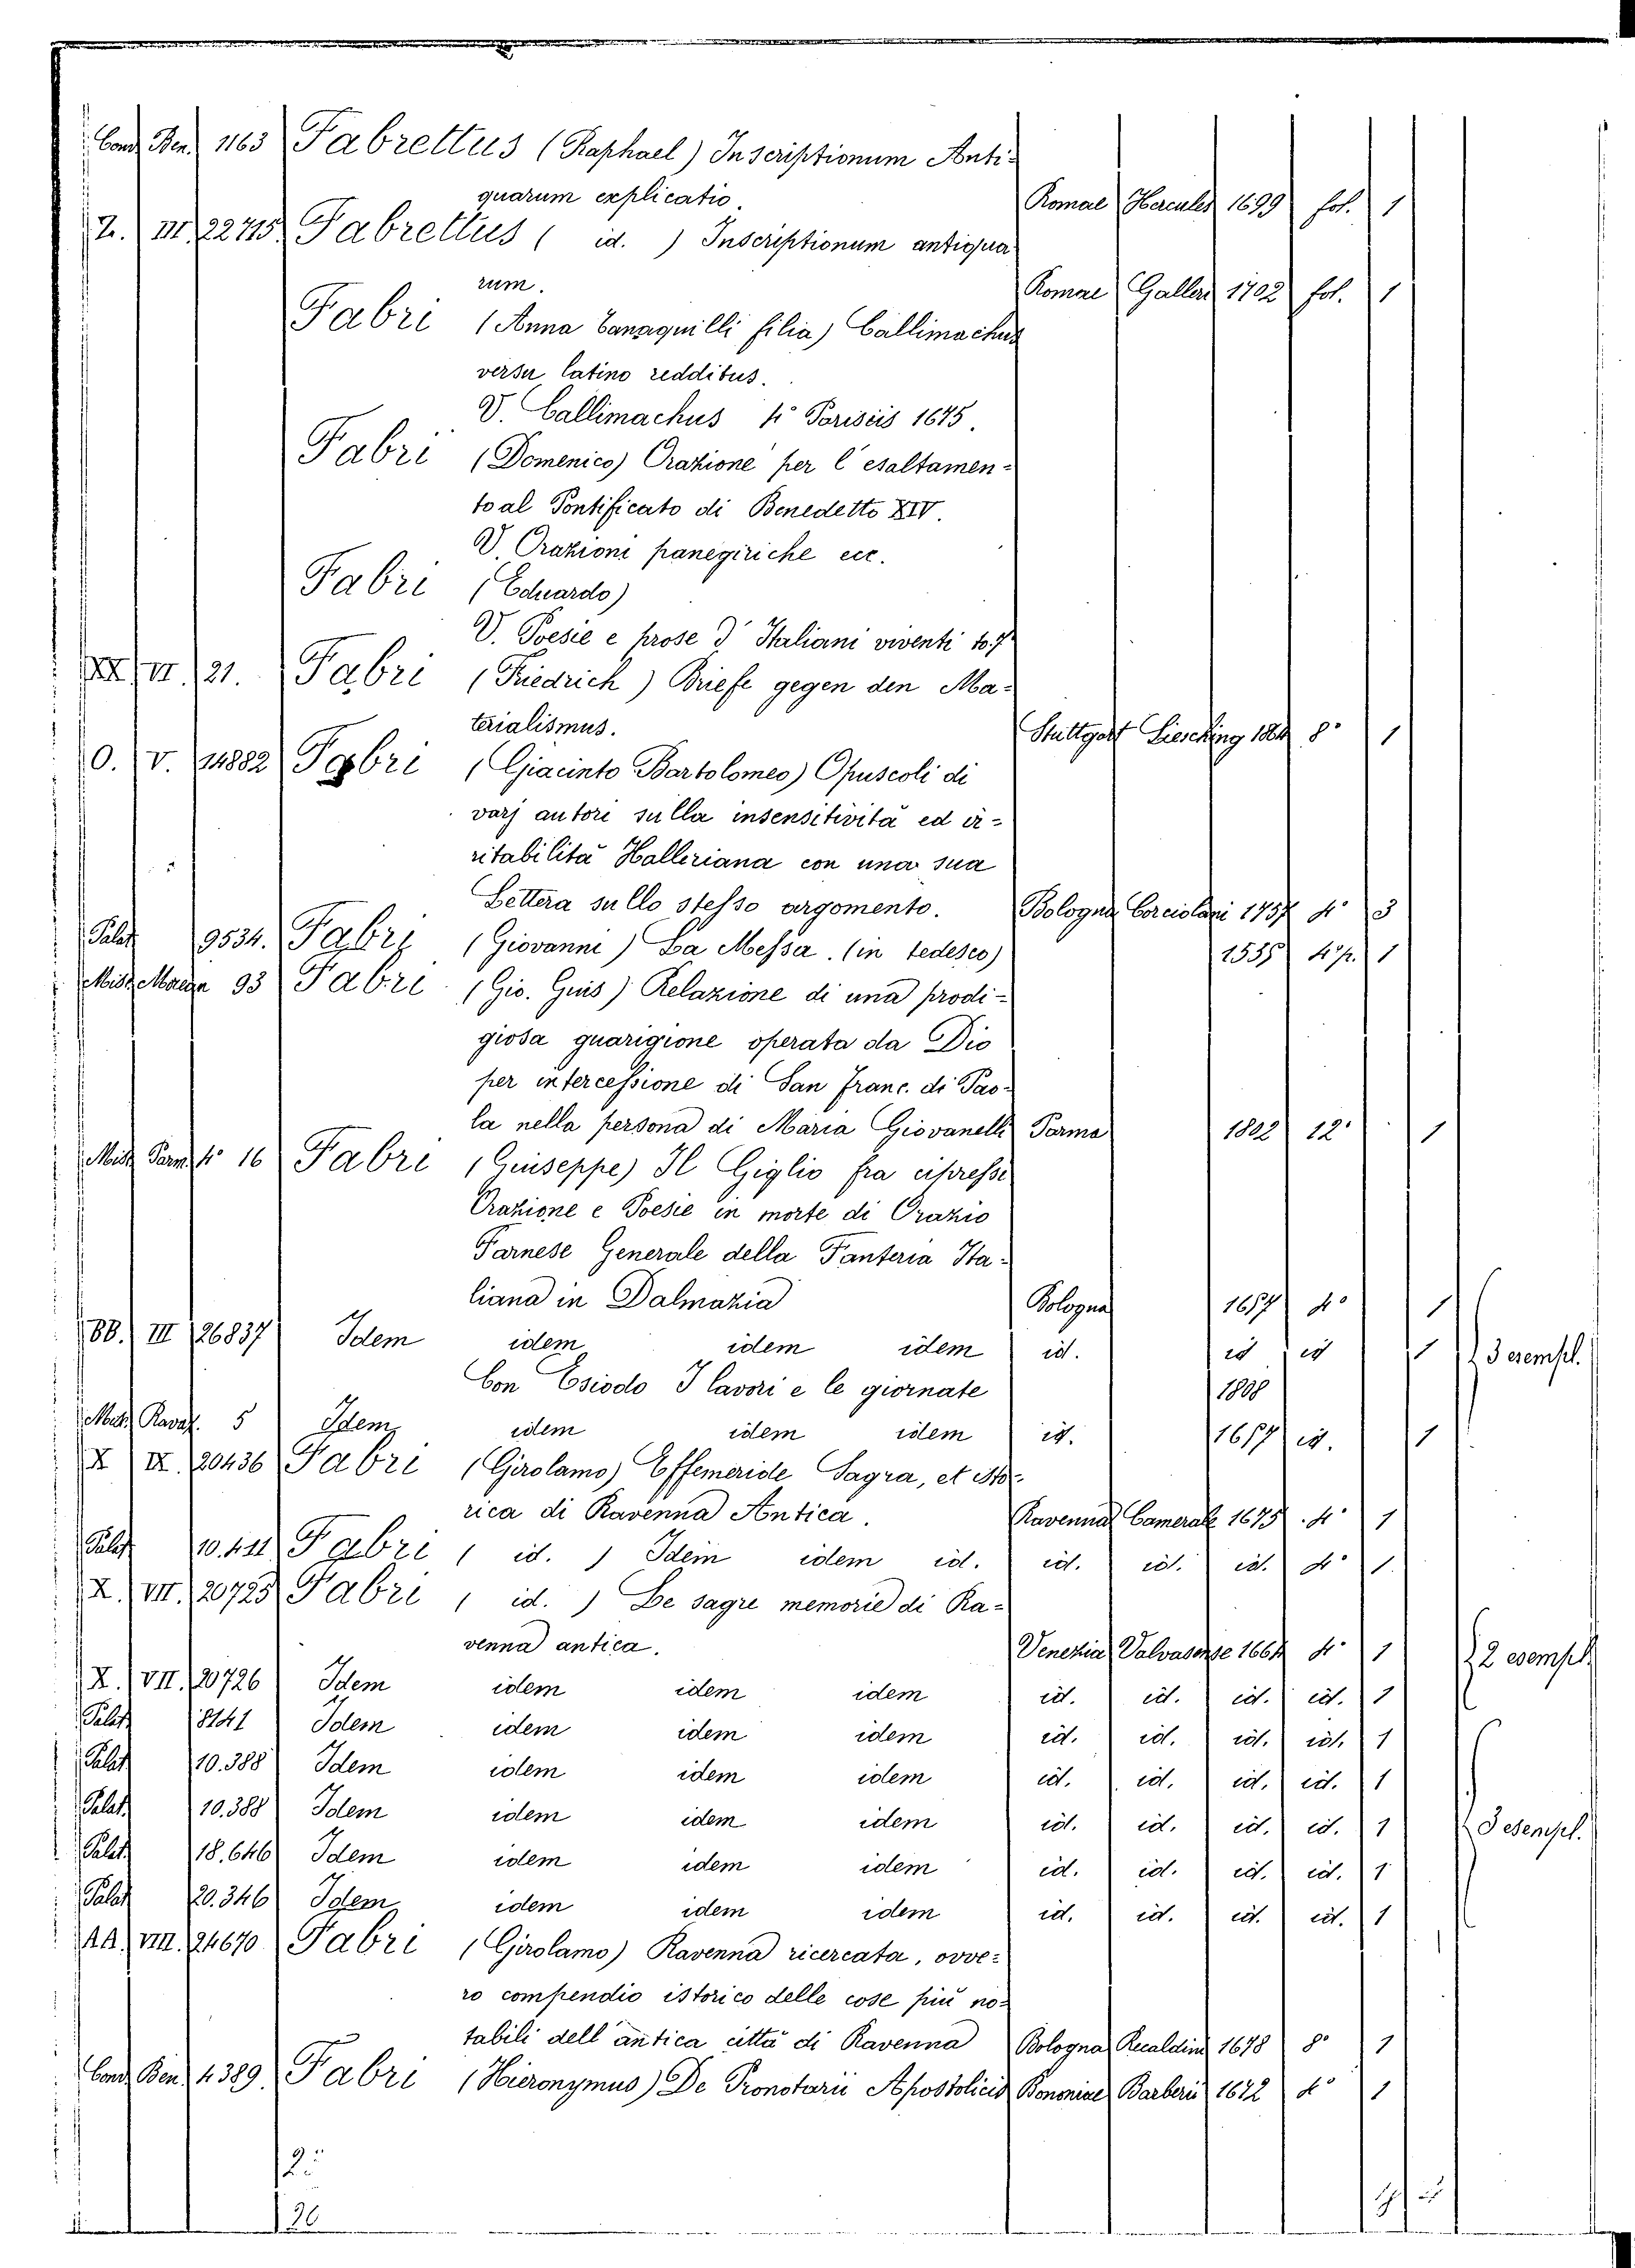 Cond. Ben. 1163 Fabrettus (Raphael) Inscriptionum Anti-
quarum explicatio. Romae Hercules 1699 fol. 1
Z. III. 22715. Fabrettus ( id. ) Inscriptionum antiqua
rum. Romae Galleri 1702 fol. 1
Fabri (Anna Tanaquilli filia) Callimachus
versu latino redditus.
V. Callimachus 4° Parisiis 1675.
Fabri (Domenico) Orazione per l'esaltamen-
to al Pontificato di Benedetto XIV.
V. Orazioni panegiriche ecc.
Fabri (Eduardo)
V. Poesie e prose d'Italiani viventi to. 7
VI. 21. Fabri (Friedrich) Briefe gegen den Ma-
terialismus. Stuttgart Liesching 1864 8° 1
O. V. 14882 Fabri (Giacinto Bartolomeo) Opuscoli di
varj autori sulla insensitività ed ir-
ritabilità Halleriana con una sua
Lettera sullo stesso argomento. Bologna Corciolani 1757 4° 3
Palat. 9534. Fabri (Giovanni) La Messa. (in tedesco) 1555 4° p. 1
Misc. 93 Fabri (Gio. Gius) Relazione di una prodi-
giosa guarigione operata da Dio
per intercessione di San Franc. di Pao-
la nella persona di Maria Giovanelli Parma 1802 12° 1
Misc. Parm. 4° 16 Fabri (Giuseppe) Il Giglio fra cipressi
Orazione e Poesie in morte di Orazio
Farnese Generale della Fanteria Ita-
liana in Dalmazia Bologna 1657 4° 1
BB. III 26837 Idem idem idem idem id. id id 1 3 esempl.
Con Esiodo I lavori e le giornate 1808
Misc. 5 Idem idem idem idem id. 1657 id. 1
X IX. 20436 Fabri (Girolamo) Effemeride Sagra, et Isto-
rica di Ravenna Antica. Ravenna Camerale 1675. 4° 1
Palat. 10.411 Fabri ( id. ) Idem idem id. id. id. id. 4° 1.
X. VII. 20725 Fabri ( id. ) Le sagre memorie di Ra-
venna antica. Venezia Valvasense 1664 4° 1 2 esempl.
X. VII. 20726 Idem idem idem idem id. id. id. id. 1
Palat. 8141 Idem idem idem idem id. id. id. id. 1
Palat. 10.388 Idem idem idem idem id. id. id. id. 1
Palat. 10.388 Idem idem idem idem id. id. id. id. 1 5 esempl.
Palat. 18.646 Idem idem idem idem id. id. id. id. 1
Palat. 20.346 Idem idem idem idem id. id. id. id. 1
AA. VIII. 24670 Fabri (Girolamo) Ravenna ricercata, ovve-
ro compendio istorico delle cose più no-
tabili dell'antica città di Ravenna Bologna Recaldini 1678 8° 1
Cond. Ben. 4389. Fabri (Hieronymus) De Pronotariis Apostolicis Bononiae Barberii 1672 4° 1
2.
26